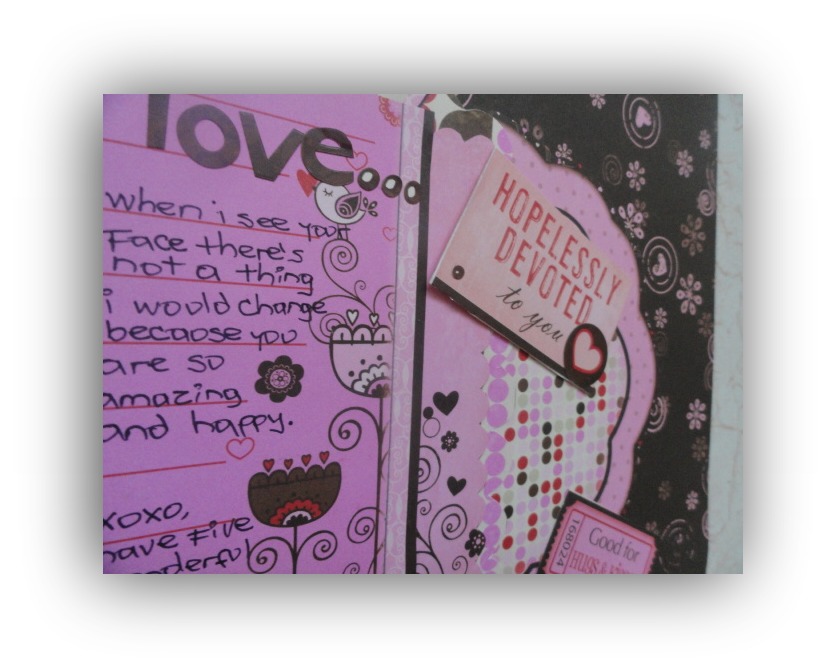 love...
when i see your
Face there's
not a thing
i would change
because you
are so
amazing
and happy.
xoxo,
have Five
HOPELESSLY
DEVOTED
to you
168024
Good for
HUGS &